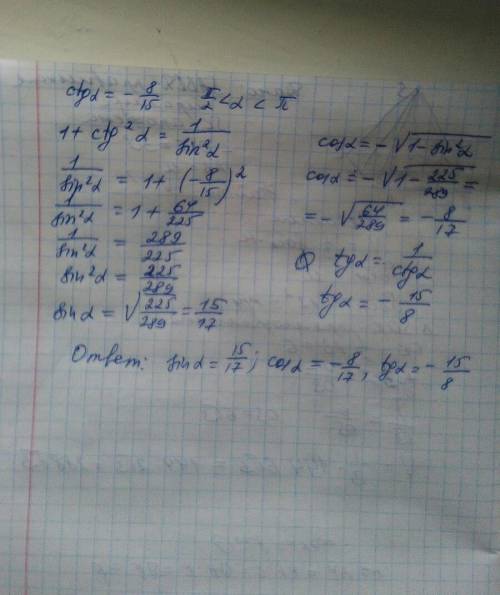 ctg α = - 8/15   π/2 < α < π
1 + ctg² α = 1/sin² α
1/sin² α = 1 + (- 8/15)²
1/sin² α = 1 + 64/225
1/sin² α = 289/225
sin² α = 225/289
sin α = √(225/289) = 15/17
cos α = - √(1 - sin² α)
cos α = - √(1 - 225/289) =
= - √(64/289) = - 8/17
tg α = 1/ctg α
tg α = - 15/8
Ответ: sin α = 15/17; cos α = - 8/17; tg α = - 15/8